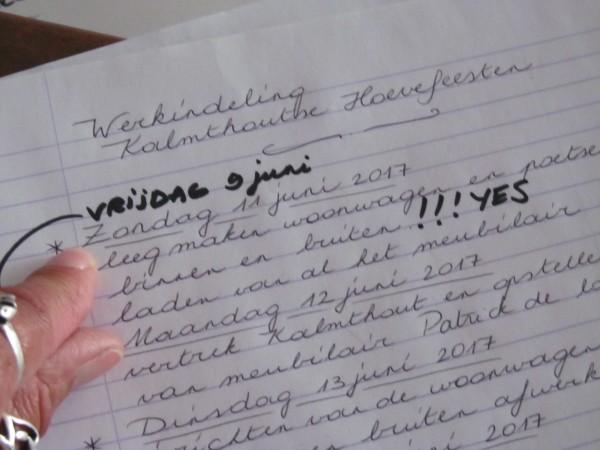 Werkindeling
Kalmthoutse Hoevefeesten
VRIJDAG 9 juni
* Zondag 11 juni 2017
leeg maken woonwagen en poetse
binnen en buiten !!! YES
laden van al het meubilair
Maandag 12 juni 2017
vertrek Kalmthout en opstelle
van meubilair Patrick de la
Dinsdag 13 juni 2017
* van de woonwagen
en buiten afwerk
2017